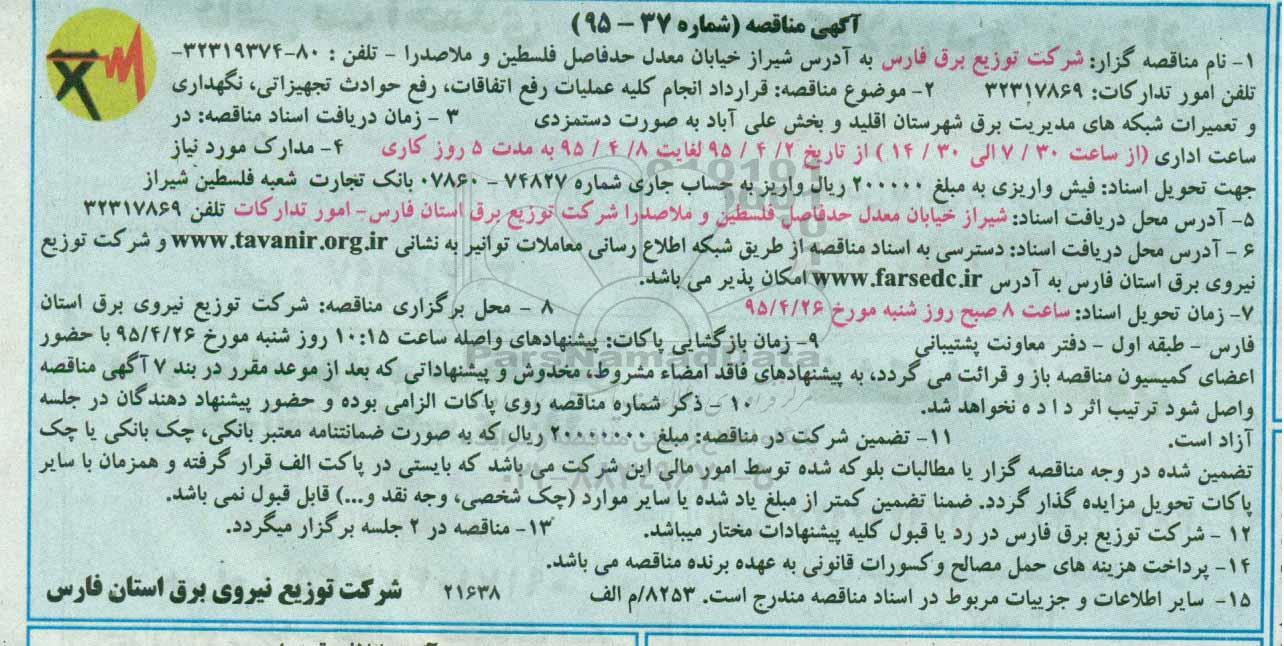 آگهی مناقصه (شماره ۳۷ – ۹۵)
۱- نام مناقصه گزار: شرکت توزیع برق فارس به آدرس شیراز خیابان معدل حدفاصل فلسطین و ملاصدرا - تلفن : ۸۰-۳۲۳۱۹۳۷۴-
تلفن امور تدارکات: ۳۲۳۱۷۸۶۹ ۲- موضوع مناقصه: قرارداد انجام کلیه عملیات رفع اتفاقات، رفع حوادث تجهیزاتی، نگهداری
و تعمیرات شبکه های مدیریت برق شهرستان اقلید و بخش علی آباد به صورت دستمزدی ۳ - زمان دریافت اسناد مناقصه: در
ساعت اداری (از ساعت ۳۰ / ۷ الی ۳۰ / ۱۴ ) از تاریخ ۲/ ۴ / ۹۵ لغایت ۸/ ۴ / ۹۵ به مدت ۵ روز کاری ۴- مدارک مورد نیاز
جهت تحویل اسناد: فیش واریزی به مبلغ ۲۰۰۰۰۰ ریال واریز به حساب جاری شماره ۷۴۸۲۷ - ۰۷۸۶۰ بانک تجارت شعبه فلسطین شیراز
۵- آدرس محل دریافت اسناد: شیراز خیابان معدل حدفاصل فلسطین و ملاصدرا شرکت توزیع برق استان فارس- امور تدارکات تلفن ۳۲۳۱۷۸۶۹
۶ - آدرس محل دریافت اسناد: دسترسی به اسناد مناقصه از طریق شبکه اطلاع رسانی معاملات توانیر به نشانی www.tavanir.org.ir و شرکت توزیع
نیروی برق استان فارس به آدرس www.farsedc.ir امکان پذیر می باشد.
۷- زمان تحویل اسناد: ساعت ۸ صبح روز شنبه مورخ ۹۵/۴/۲۶ ۸ - محل برگزاری مناقصه: شرکت توزیع نیروی برق استان
فارس - طبقه اول - دفتر معاونت پشتیبانی ۹- زمان بازگشایی پاکات: پیشنهادهای واصله ساعت ۱۰:۱۵ روز شنبه مورخ ۹۵/۴/۲۶ با حضور
اعضای کمیسیون مناقصه باز و قرائت می گردد، به پیشنهادهای فاقد امضاء مشروط، مخدوش و پیشنهاداتی که بعد از موعد مقرر در بند ۷ آگهی مناقصه
واصل شود ترتیب اثر د ا د ه نخواهد شد. ۱۰ - ذکر شماره مناقصه روی پاکات الزامی بوده و حضور پیشنهاد دهندگان در جلسه
آزاد است. ۱۱- تضمین شرکت در مناقصه: مبلغ ۲۰۰۰۰۰۰۰۰ ریال که به صورت ضمانتنامه معتبر بانکی، چک بانکی یا چک
تضمین شده در وجه مناقصه گزار یا مطالبات بلوکه شده توسط امور مالی این شرکت می باشد که بایستی در پاکت الف قرار گرفته و همزمان با سایر
پاکات تحویل مزایده گذار گردد. ضمنا تضمین کمتر از مبلغ یاد شده یا سایر موارد (چک شخصی، وجه نقد و...) قابل قبول نمی باشد.
۱۲ - شرکت توزیع برق فارس در رد یا قبول کلیه پیشنهادات مختار میباشد. ۱۳- مناقصه در ۲ جلسه برگزار میگردد.
۱۴- پرداخت هزینه های حمل مصالح وکسورات قانونی به عهده برنده مناقصه می باشد.
۱۵- سایر اطلاعات و جزییات مربوط در اسناد مناقصه مندرج است. ۸۲۵۳/م الف ۲۱۶۳۸ شرکت توزیع نیروی برق استان فارس
ParsNamadData